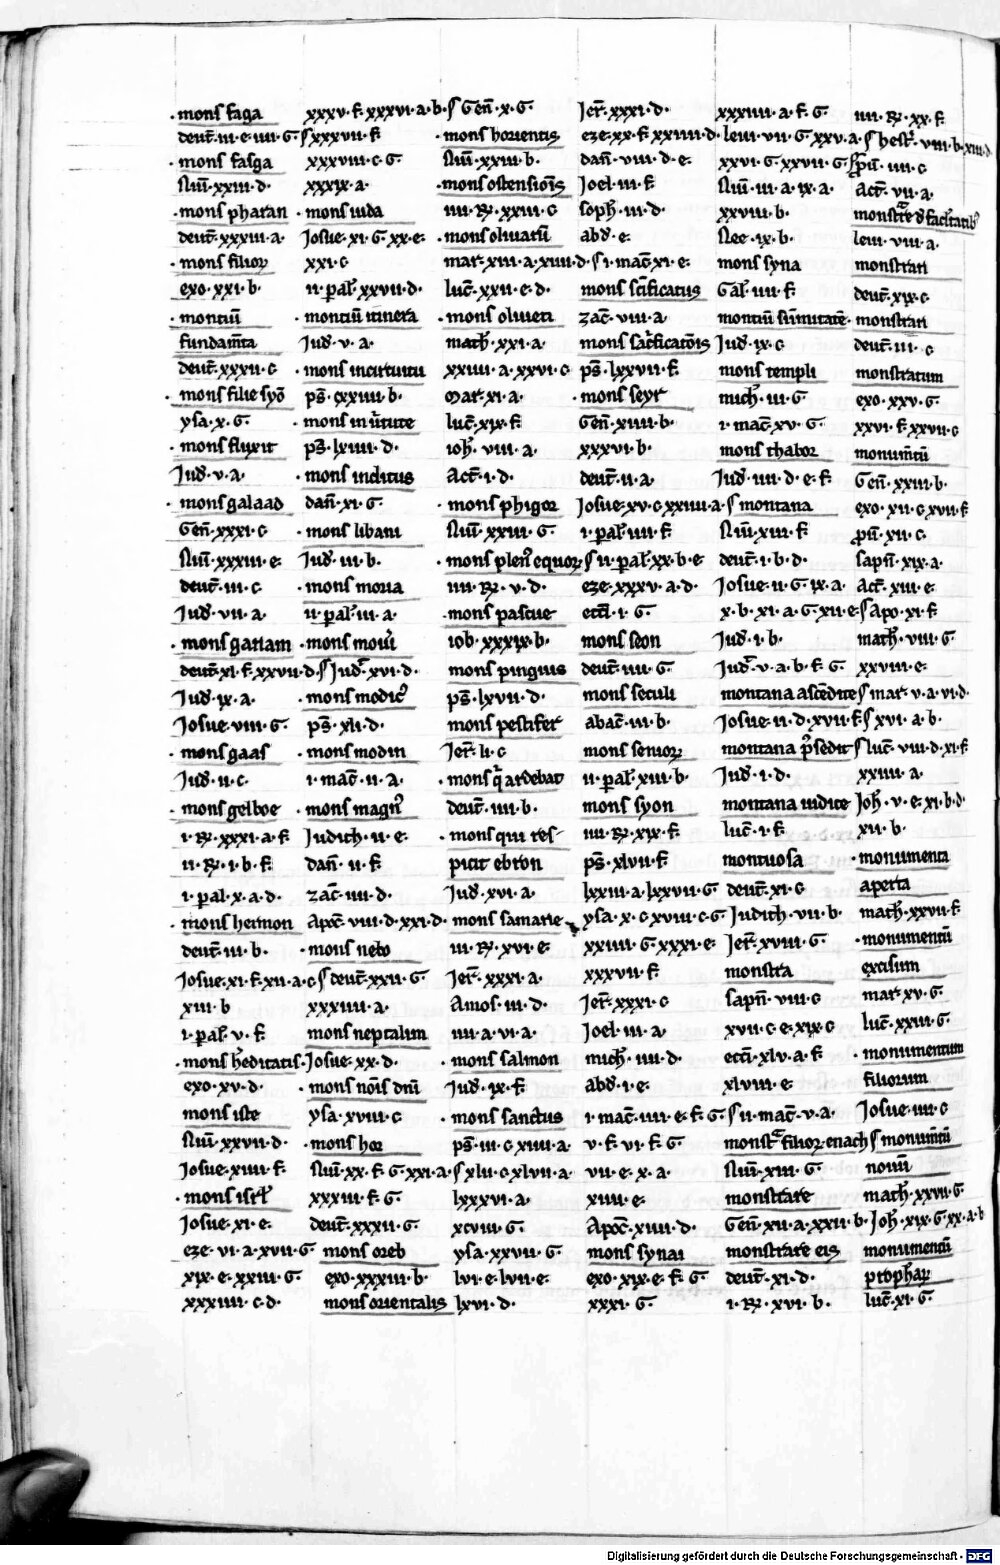 mons faga
deut̄·iii·e·iiii·G·
mons fasga
Nūi·xxiii·d·
mons pharan
deut̄·xxxiii·a·
mons filior
exo·xxi·b·
montiū
fundam̄ta
deut̄·xxxii·c·
mons filie syō
ysa·x·G·
mons fluxit
Iud̄·v·a·
mons galaad
Gen̄·xxxi·c·
Nūi·xxxiii·e·
deut̄·iii·c·
Iud̄·vii·a·
mons gariam
deut̄·xi·f·xxvii·d·
Iud̄·ix·a·
Iosue·viii·G·
mons gaas
Iud̄·ii·c·
mons gelboe
i·R·xxxi·a·f·
ii·R·i·b·f·
i·pal·x·a·d·
mons hermon
deut̄·iii·b·
Iosue·xi·f·xii·a·c·
xiii·b
i·pal̄·v·f·
mons h̄editatis
exo·xv·d·
mons iste
Nūi·xxvii·d·
Iosue·xiiii·f·
mons isrl̄
Iosue·xi·e·
eze·vi·a·xvii·G·
xix·e·xxiii·G·
xxxiiii·c·d·
xxxv·f·xxxvi·a·b·
xxxvii·f
xxxviii·c·G·
xxxix·a·
mons iuda
Iosue·xi·G·xx·e·
xxi·c
ii·pal̄·xxvii·d·
montiū itinera
Iud̄·v·a·
mons incircuitu
ps̄·cxxiiii·b·
mons in v̄tute
ps̄·lxiiii·d·
mons inclitus
dan̄·xi·G·
mons libani
Iud̄·iii·b·
mons moria
ii·pal̄·iii·a·
mons
Iud̄·xvi·d·
mons modic
ps̄·xli·d·
mons modin
i·mac̄·ii·a·
mons magn
Iudich·ii·e·
dan̄·ii·f
zac̄·iiii·d·
Apoc̄·viii·d·xxi·d·
mons nebo
deut̄·xxii·G·
xxxiiii·a·
mons neptalim
Iosue·xx·d·
mons nōis dn̄i
ysa·xviii·c
mons hor
Nūi·xx·f·G·xxi·a·
xxxiii·f·G·
deut̄·xxxii·G·
mons oreb
exo·xxxiii·b·
mons orientalis
Gen̄·x·G·
mons horientis
Nūi·xxiii·b·
mons ostensiōis
iiii·R·xxiii·c
mons olivarū
mar·xiii·a·xiiii·d·
luc̄·xxii·e·d·
mons oliveti
math̄·xxi·a·
xxiiii·a·xxvi·c
mar·xi·a·
luc̄·xix·f
ioh̄·viii·a·
Act̄·i·d·
mons phigor
Nūi·xxiii·G·
mons plen equor
iiii·R·v·d·
mons pascue
iob·xxxix·b·
mons pinguis
ps̄·lxvii·d·
mons pestifer
Ier̄·li·c
mons q̄ ardebat
deut̄·iiii·b·
mons qui res-
picit ebron
Iud̄·xvi·a·
mons samarie
iii·R·xvi·e·
Ier̄·xxxi·a·
Amos·iii·d·
iiii·a·vi·a·
mons salmon
Iud̄·ix·f·
mons sanctus
ps̄·iii·c·xiiii·a·
xlii·c·xlvii·a·
lxxxvi·a·
xcviii·G·
ysa·xxvii·G·
lvi·e·lvii·e·
lxvi·d·
Ier̄·xxxi·d·
eze·xx·f·xxiiii·d·
dan̄·viii·d·e·
Ioel·iii·f·
soph̄·iii·d·
abd̄·e·
i·mac̄·xi·e·
mons scīficatus
zac̄·viii·a·
mons sac̄ficatōis
ps̄·lxxvii·f·
mons seyr
Gen̄·xiiii·b·
xxxvi·b·
deut̄·ii·a·
Iosue·xv·c·xxiiii·a·
i·pal̄·iiii·f·
ii·pal̄·xx·b·e
eze·xxxv·a·d·
ecc̄l·i·G·
mons seon
deut̄·iiii·G·
mons seculi
abac̄·iii·b·
mons senior
ii·pal̄·xiii·b·
mons syon
iiii·R·xix·f·
ps̄·xlvii·f·
lxxiii·a·lxxvii·G
ysa·x·c·xviii·c·G·
xxiiii·G·xxxi·e·
xxxvii·f
Ier̄·xxxi·c
Ioel·iii·a·
mich̄·iiii·d·
abd̄·i·e·
i·mac̄·iiii·e·f·G·
v·f·vi·f·G·
vii·e·x·a·
xiiii·e·
Apoc̄·xiiii·d·
mons synai
exo·xix·e·f·G·
xxxi·G·
xxxiiii·a·f·G
levi·vii·G·xxv·a·
xxvi·G·xxvii·G·
Nūi·iii·a·ix·a·
xxviii·b·
Nee·ix·b·
mons syna
Gal̄·iiii·f·
montiū sūmitatē
Iud̄·ix·c
mons templi
mich̄·iii·G
i·mac̄·xv·G·
mons thabor
Iud̄·iiii·d·e·f
montana
Nūi·xiii·f·
deut̄·i·b·d·
Iosue·ii·G·ix·a·
x·b·xi·a·G·xii·e·
Iud̄·i·b·
Iud̄·v·a·b·f·G·
xxviii·e·
montana ascēdite
Iosue·ii·d·xvii·f
montana p̄sedit
Iud̄·i·d·
montana iudice
luc̄·i·f·
montuosa
deut̄·xi·c
Iudich·vii·b·
Ier̄·xviii·G·
monstra
sapn̄·viii·c
xvii·c·e·xix·c
ecc̄i·xlv·a·f·
xlviii·e·
ii·mac̄·v·a·
monst filior enach
Nūi·xiii·G·
monstrare
Gen̄·xii·a·xxii·b·
monstrare eis
deut̄·xi·d·
i·R·xvi·b·
iiii·R·xx·f·
hest·viii·b·xiii·d
p̄ū·iiii·c
Act̄·vii·a·
levi·viii·a·
monstrari
deut̄·xix·c
monstrari
deut̄·iii·c
monstratum
exo·xxv·G·
xxvi·f·xxvii·c
monum̄tū
Gen̄·xxiii·b·
exo·xii·c·xvii·f
p̄ū·xii·c·
sapn̄·xix·a·
Act̄·xiii·e·
Apo·xi·f
math̄·viii·G·
xxviii·e·
mar·v·a·vi·d·
xvi·a·b·
luc̄·viii·d·xi·f
xxiiii·a·
Ioh̄·v·e·xi·b·d·
xii·b·
monumenta
aperta
math̄·xxvii·f
monumentū
excisum
mar·xv·G·
luc̄·xxiii·G·
monumentum
filiorum
Iosue·iiii·c
monum̄tū
novū
math̄·xxvii·G·
Ioh̄·xix·G·xx·a·b
monumentū
prophar
luc̄·xi·G·
Digitalisierung gefördert durch die Deutsche Forschungsgemeinschaft - DFG